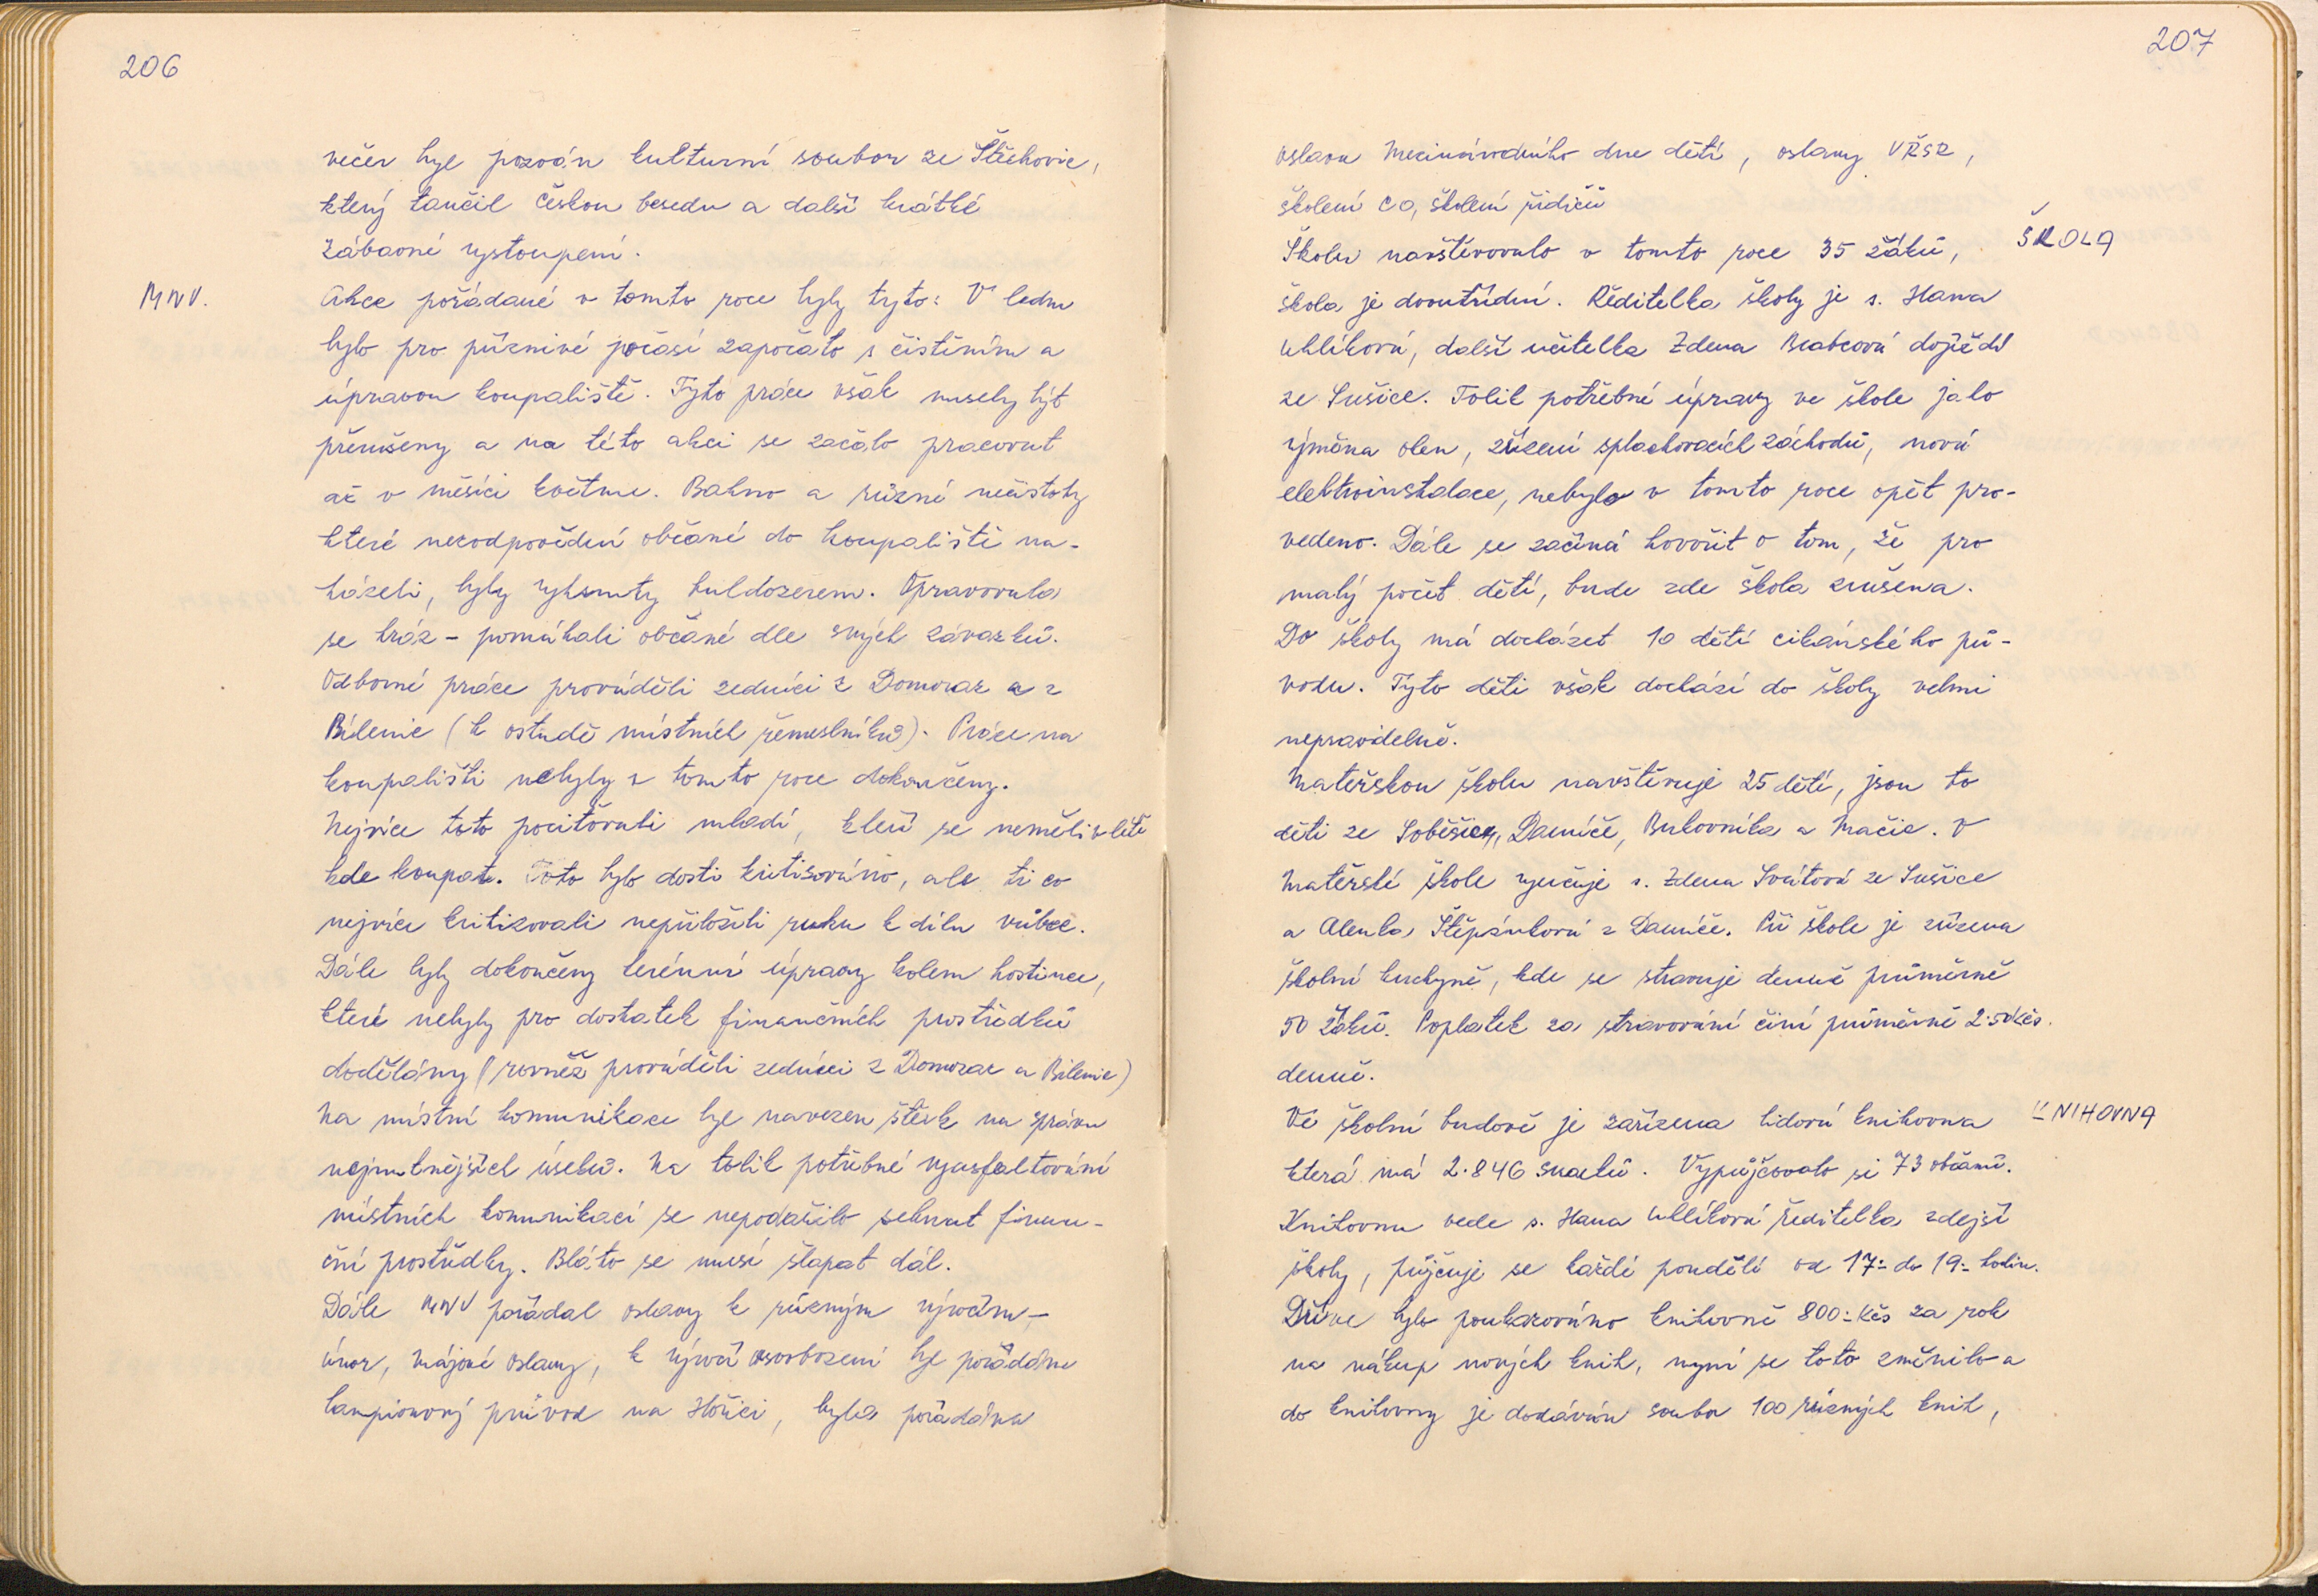 206
večer byl pozván kulturní soubor ze Štěchovic,
který tančil Českou besedu a další krátké
zábavní vystoupení.
MNV.
Akce pořádané v tomto roce byly tyto: V lednu
bylo pro příznivé počasí započato s čistěním a
úpravou koupaliště. Tyto práce však musely být
přerušeny a na této akci se začalo pracovat
až v měsíci květnu. Bahno a různé nečistoty
které nezodpovědní občané do koupaliště na-
házeli, byly vyhrnuty buldozerem. Opravovala
se hráz - pomáhali občané dle svých závazků.
Odborné práce prováděli zedníci z Domoraz a z
Bílenic (k ostudě místních řemeslníků). Práce na
koupališti nebyly v tomto roce dokončeny.
Nejvíce toto pociťovali mladí, kteří se neměli v létě
kde koupat. Toto bylo dosti kritisováno, ale ti co
nejvíce kritizovali nepřiložili ruku k dílu vůbec.
Dále byly dokončeny terénní úpravy kolem hostince,
které nebyly pro dostatek finančních prostředků
dodělány (rovněž prováděli zedníci z Domoraz a Bílenic)
Na místní komunikace byl navezen štěrk na správu
nejnutnějších úseků. Na tolik potřebné vyasfaltování
místních komunikací se nepodařilo sehnat finan-
ční prostředky. Bláto se musí šlapat dál.
Dále MNV pořádal oslavy k různým výročím -
únor, májové oslavy, k výročí osvobození byl pořádán
lampionový průvod na Hořici, byla pořádána
207
oslava Mezinárodního dne dětí, oslavy VŘSR,
školení CO, školení řidičů
ŠKOLA
Školu navštěvovalo v tomto roce 35 žáků,
škola je dvoutřídní. Ředitelka školy je s. Hana
Uhlíková, další učitelka Zdena Brabcová dojíždí
ze Sušice. Tolik potřebné úpravy ve škole jako
výměna oken, zřízení splachovacích záchodů, nová
elektroinstalace, nebylo v tomto roce opět pro-
vedeno. Dále se začíná hovořit o tom, že pro
malý počet dětí, bude zde škola zrušena.
Do školy má docházet 10 dětí cikánského pů-
vodu. Tyto děti však dochází do školy velmi
nepravidelně.
Mateřskou školu navštěvuje 25 dětí, jsou to
děti ze Soběšic, Damíče, Bukovníka a Mačic. V
Mateřské škole vyučuje s. Zdena Svátová ze Sušice
a Alenka Štěpánková z Damíče. Při škole je zřízena
školní kuchyně, kde se stravuje denně průměrně
50 žáků. Poplatek za stravování činí průměrně 2.50 Kčs.
denně.
KNIHOVNA
Ve školní budově je zařízena lidová knihovna
která má 2.846 svazků. Vypůjčovalo si 73 občanů.
Knihovnu vede s. Hana Uhlíková ředitelka zdejší
školy, půjčuje se každé pondělí od 17.- do 19.- hodin.
Dříve bylo poukazováno knihovně 800.- Kčs za rok
na nákup nových knih, nyní se toto změnilo a
do knihovny je dodáván soubor 100 různých knih,